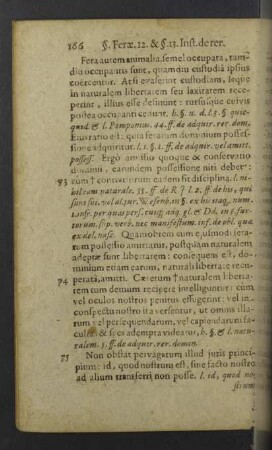 166 §. Feræ.12. & §.13. Inst. de rer.
Fera autem animalia, semel occupata, tam-
diu occupantis sunt, quamdiu custodia ipsius
coërcentur. At si evaserint custodiam, seque
in naturalem libertatem seu laxitatem rece-
perint, illius esse desinunt: rursusque cuivis
postea occupanti cedunt. h. §. u. d. l.3. § quic-
quid. & l. Pomponius. 44. ff. de adquir. rer. dom.
Eius ratio est: quia ferarum dominium possessi-
one adquiritur. l. 1. §. 1. ff. de adquir. vel amitt.
possess. Ergo amissio quoque & conservatio
dominii, earundem possessione niti debet:
73 cum † contrariorum eadem sit disciplina. l. ni-
hil tam naturale. 35. ff. de R. J. l. 2. ff. de his, qui
sunt sui, vel al. jur. & efend. in §. ex hoc itaq, num.
1. insp. per quas pers. cuiq; adq. gl. et Dd. in §. fur-
torum. sup. verb. nec manifestum. inf. de obl. quæ
ex del. nasc. Quamobrem cum ejusmodi fera-
rum possessio amittatur, postquam naturalem
adeptæ sunt libertatem: consequens est, do-
minium etiam earum, naturali libertate recu-
74 perata, amitti. Cæterum † naturalem liberta-
tem tum demum recipere intelliguntur: cum
vel oculos nostros penitus effugerint: vel in
conspectu nostro ita versentur, ut omnis illa-
rum vel persequendarum, vel capiendarum fa-
cultas & spes adempta videatur, h. §. & l. natu-
ralem. 5. ff. de adquir. rer. domin.
75 Non obstat pervagatum illud juris princi-
pium: id, quod nostrum est, sine facto nostro
ad alium transferri non posse. l. id, quod no-
strum